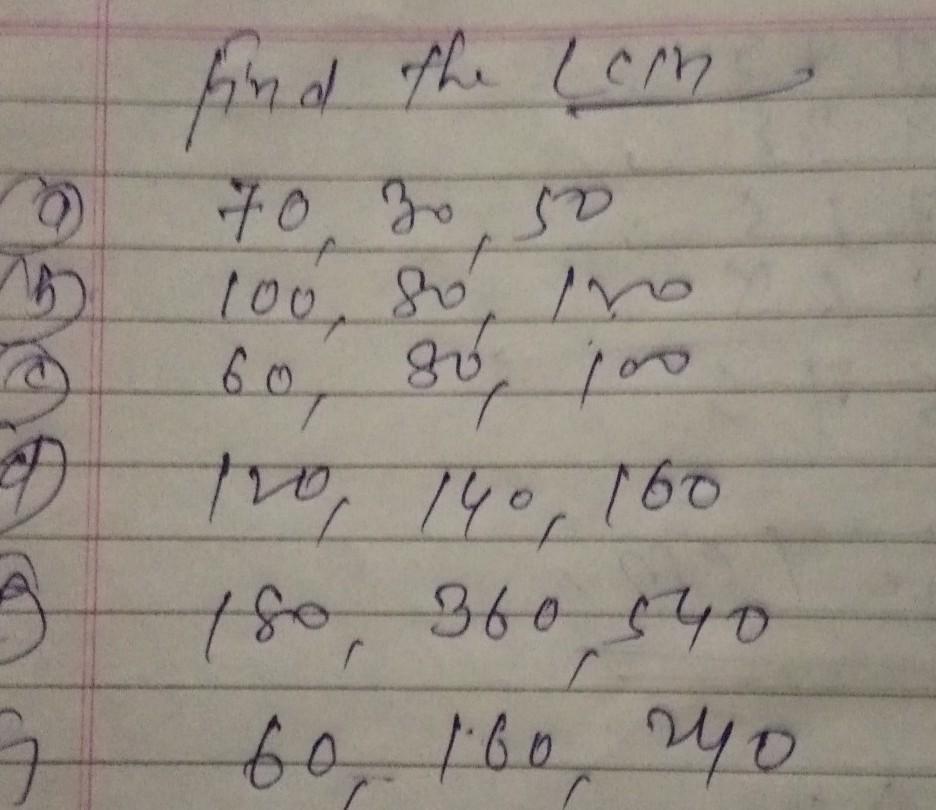 find the LCM
(a) 70, 30, 50
(b) 100, 80, 120
(c) 60, 80, 100
(d) 120, 140, 160
180, 360, 540
60, 160, 240